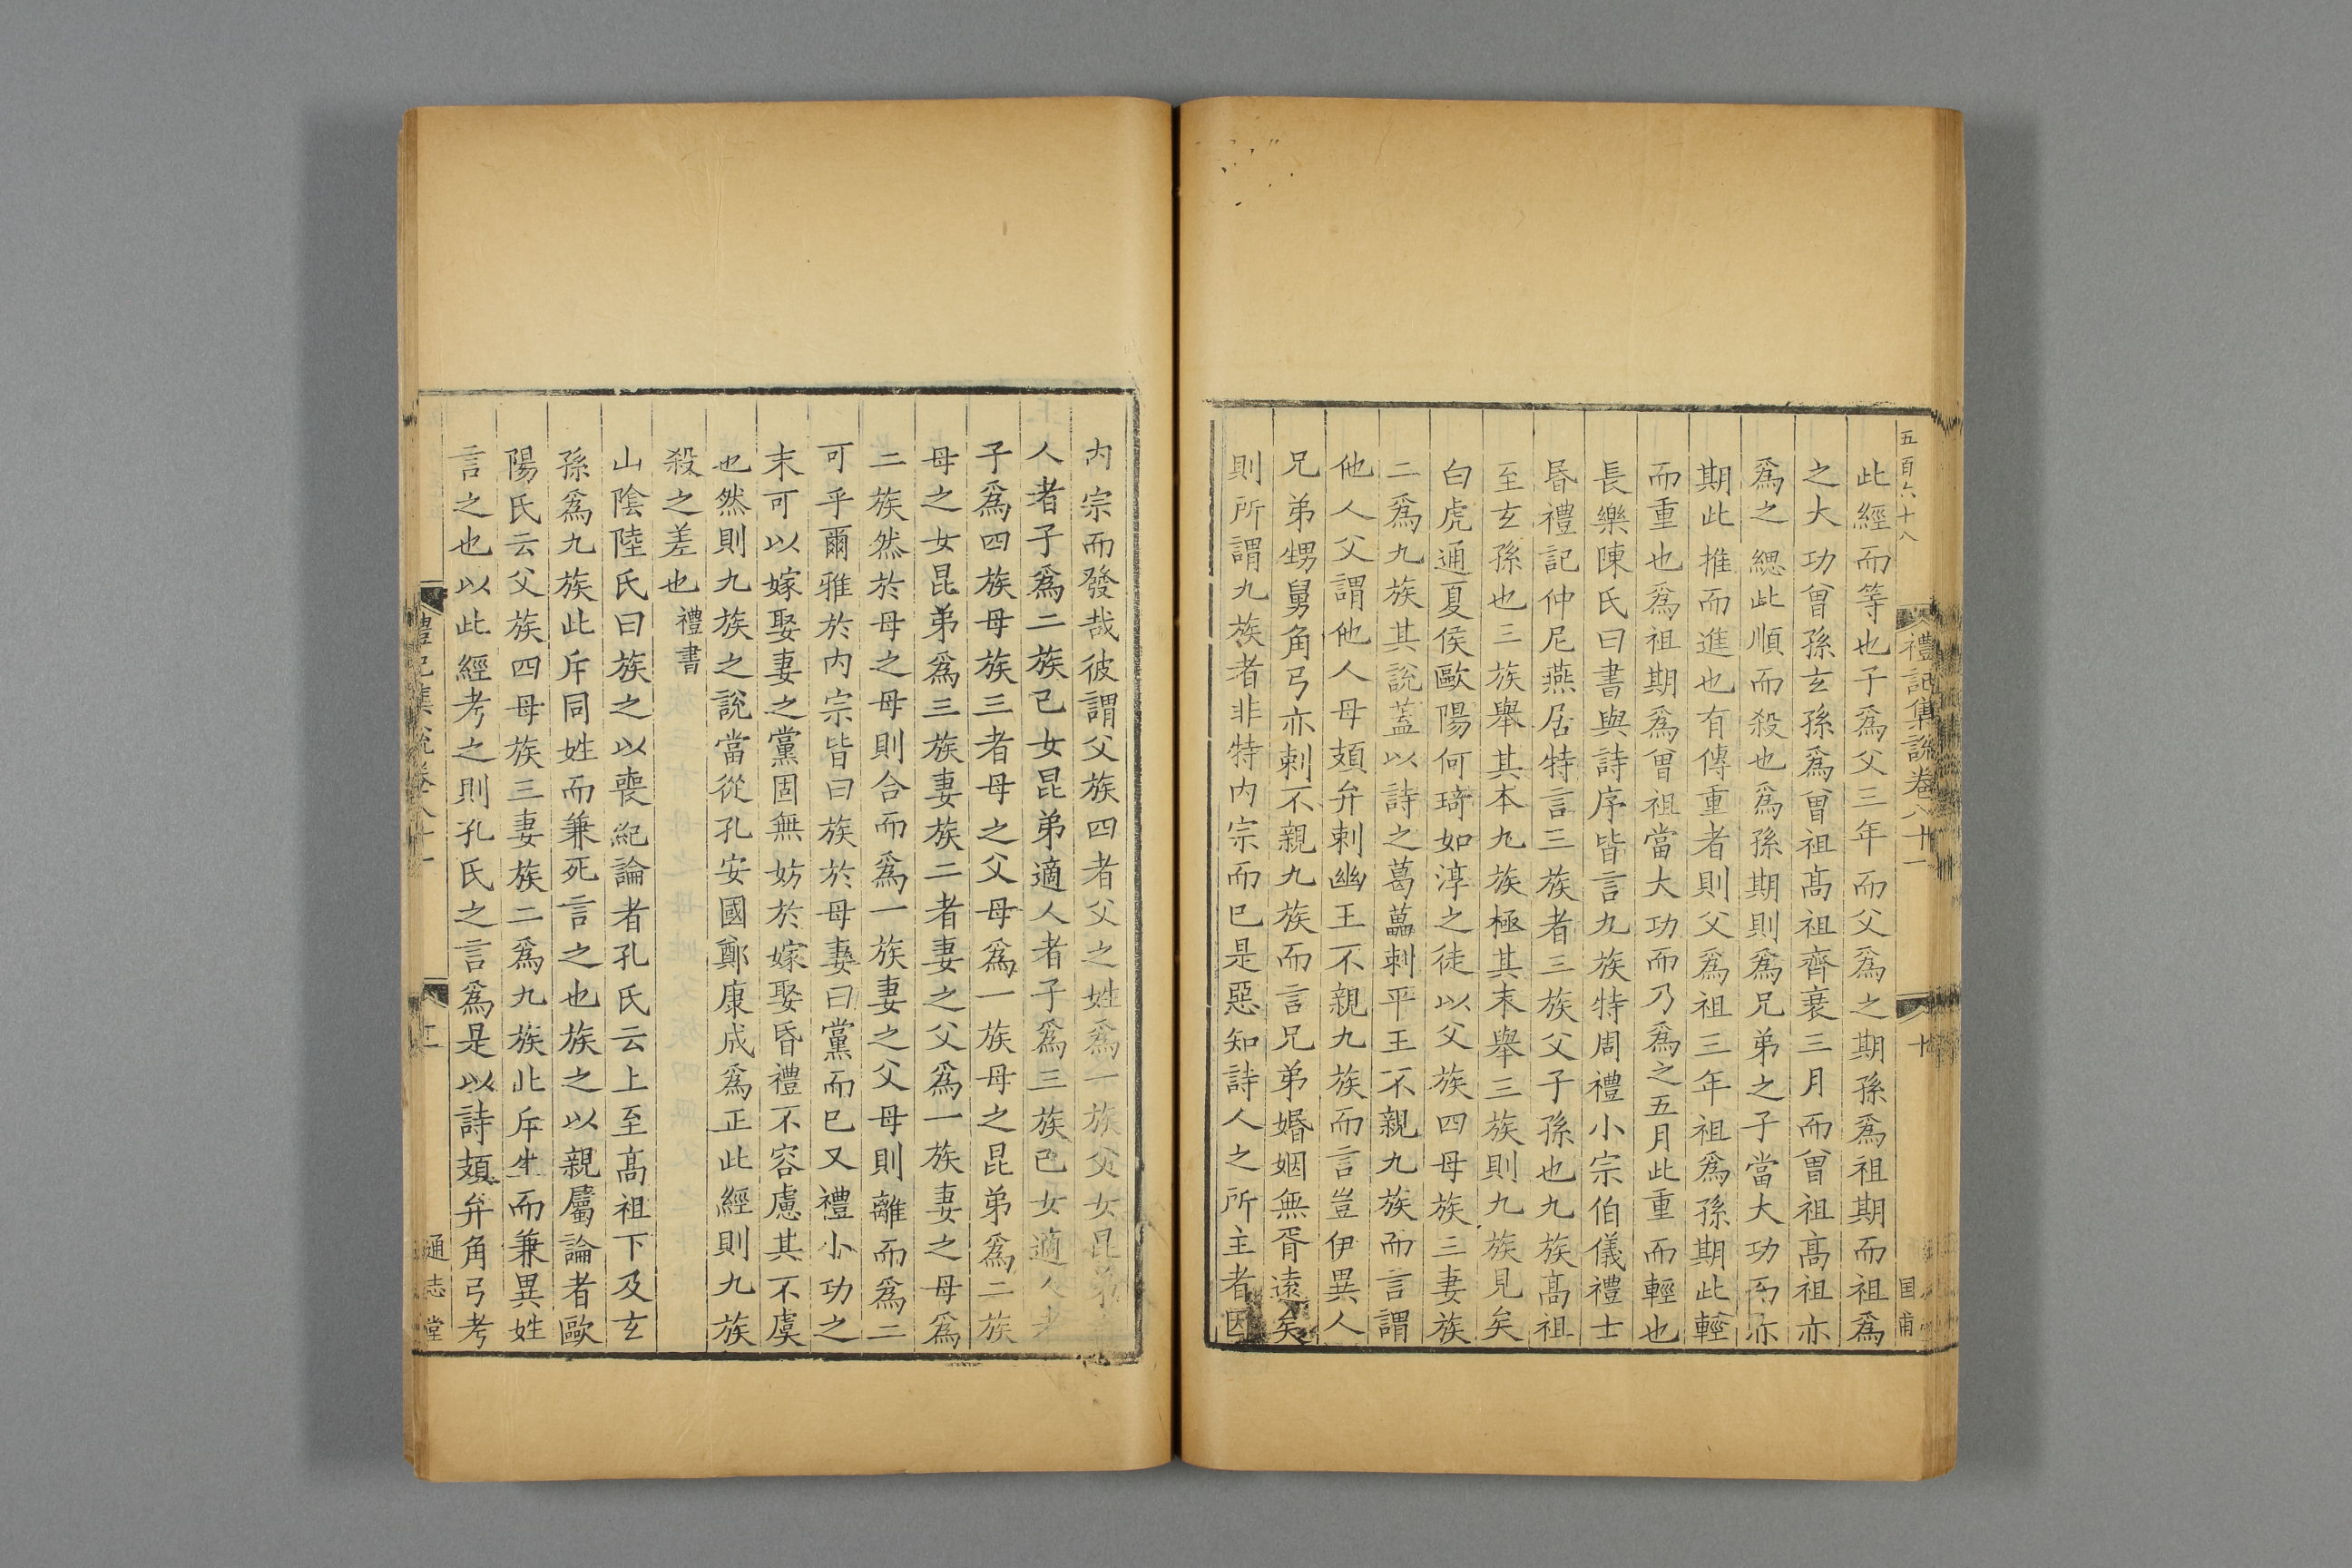 五百六十八
禮記集說卷八十一
十
国甫
此經而等也子爲父三年而父爲之期孫爲祖期而祖爲
之大功曾孫玄孫爲曾祖高祖齊衰三月而曾祖高祖亦
爲之緦此順而殺也爲孫期則爲兄弟之子當大功而亦
期此推而進也有傳重者則父爲祖三年祖爲孫期此輕
而重也爲祖期爲曾祖當大功而乃爲之五月此重而輕也
長樂陳氏曰書與詩序皆言九族特周禮小宗伯儀禮士
昬禮記仲尼燕居特言三族者三族父子孫也九族髙祖
至玄孫也三族舉其本九族極其末舉三族則九族見矣
白虎通夏侯歐陽何琦如淳之徒以父族四母族三妻族
二爲九族其說蓋以詩之葛藟刺平王不親九族而言謂
他人父謂他人母頍弁刺幽王不親九族而言豈伊異人
兄弟甥舅角弓亦刺不親九族而言兄弟婚姻無胥遠矣
則所謂九族者非特内宗而已是惡知詩人之所主者因
内宗而發哉彼謂父族四者父之姓爲一族父女昆弟適
人者子爲二族己女昆弟適人者子爲三族己女適人者
子爲四族母族三者母之父母爲一族母之昆弟爲二族
母之女昆弟爲三族妻族二者妻之父爲一族妻之母爲
二族然於母之母則合而爲一族妻之父母則離而爲二
可乎爾雅於内宗皆曰族於母妻曰黨而已又禮小功之
末可以嫁娶妻之黨固無妨於嫁娶昏禮不容慮其不虞
也然則九族之說當從孔安國鄭康成爲正此經則九族
殺之差也禮書
山陰陸氏曰族之以喪紀論者孔氏云上至髙祖下及玄
孫爲九族此斥同姓而兼死言之也族之以親屬論者歐
陽氏云父族四母族三妻族二爲九族此斥生而兼異姓
言之也以此經考之則孔氏之言爲是以詩頍弁角弓考
禮記集說卷八十一
通志堂